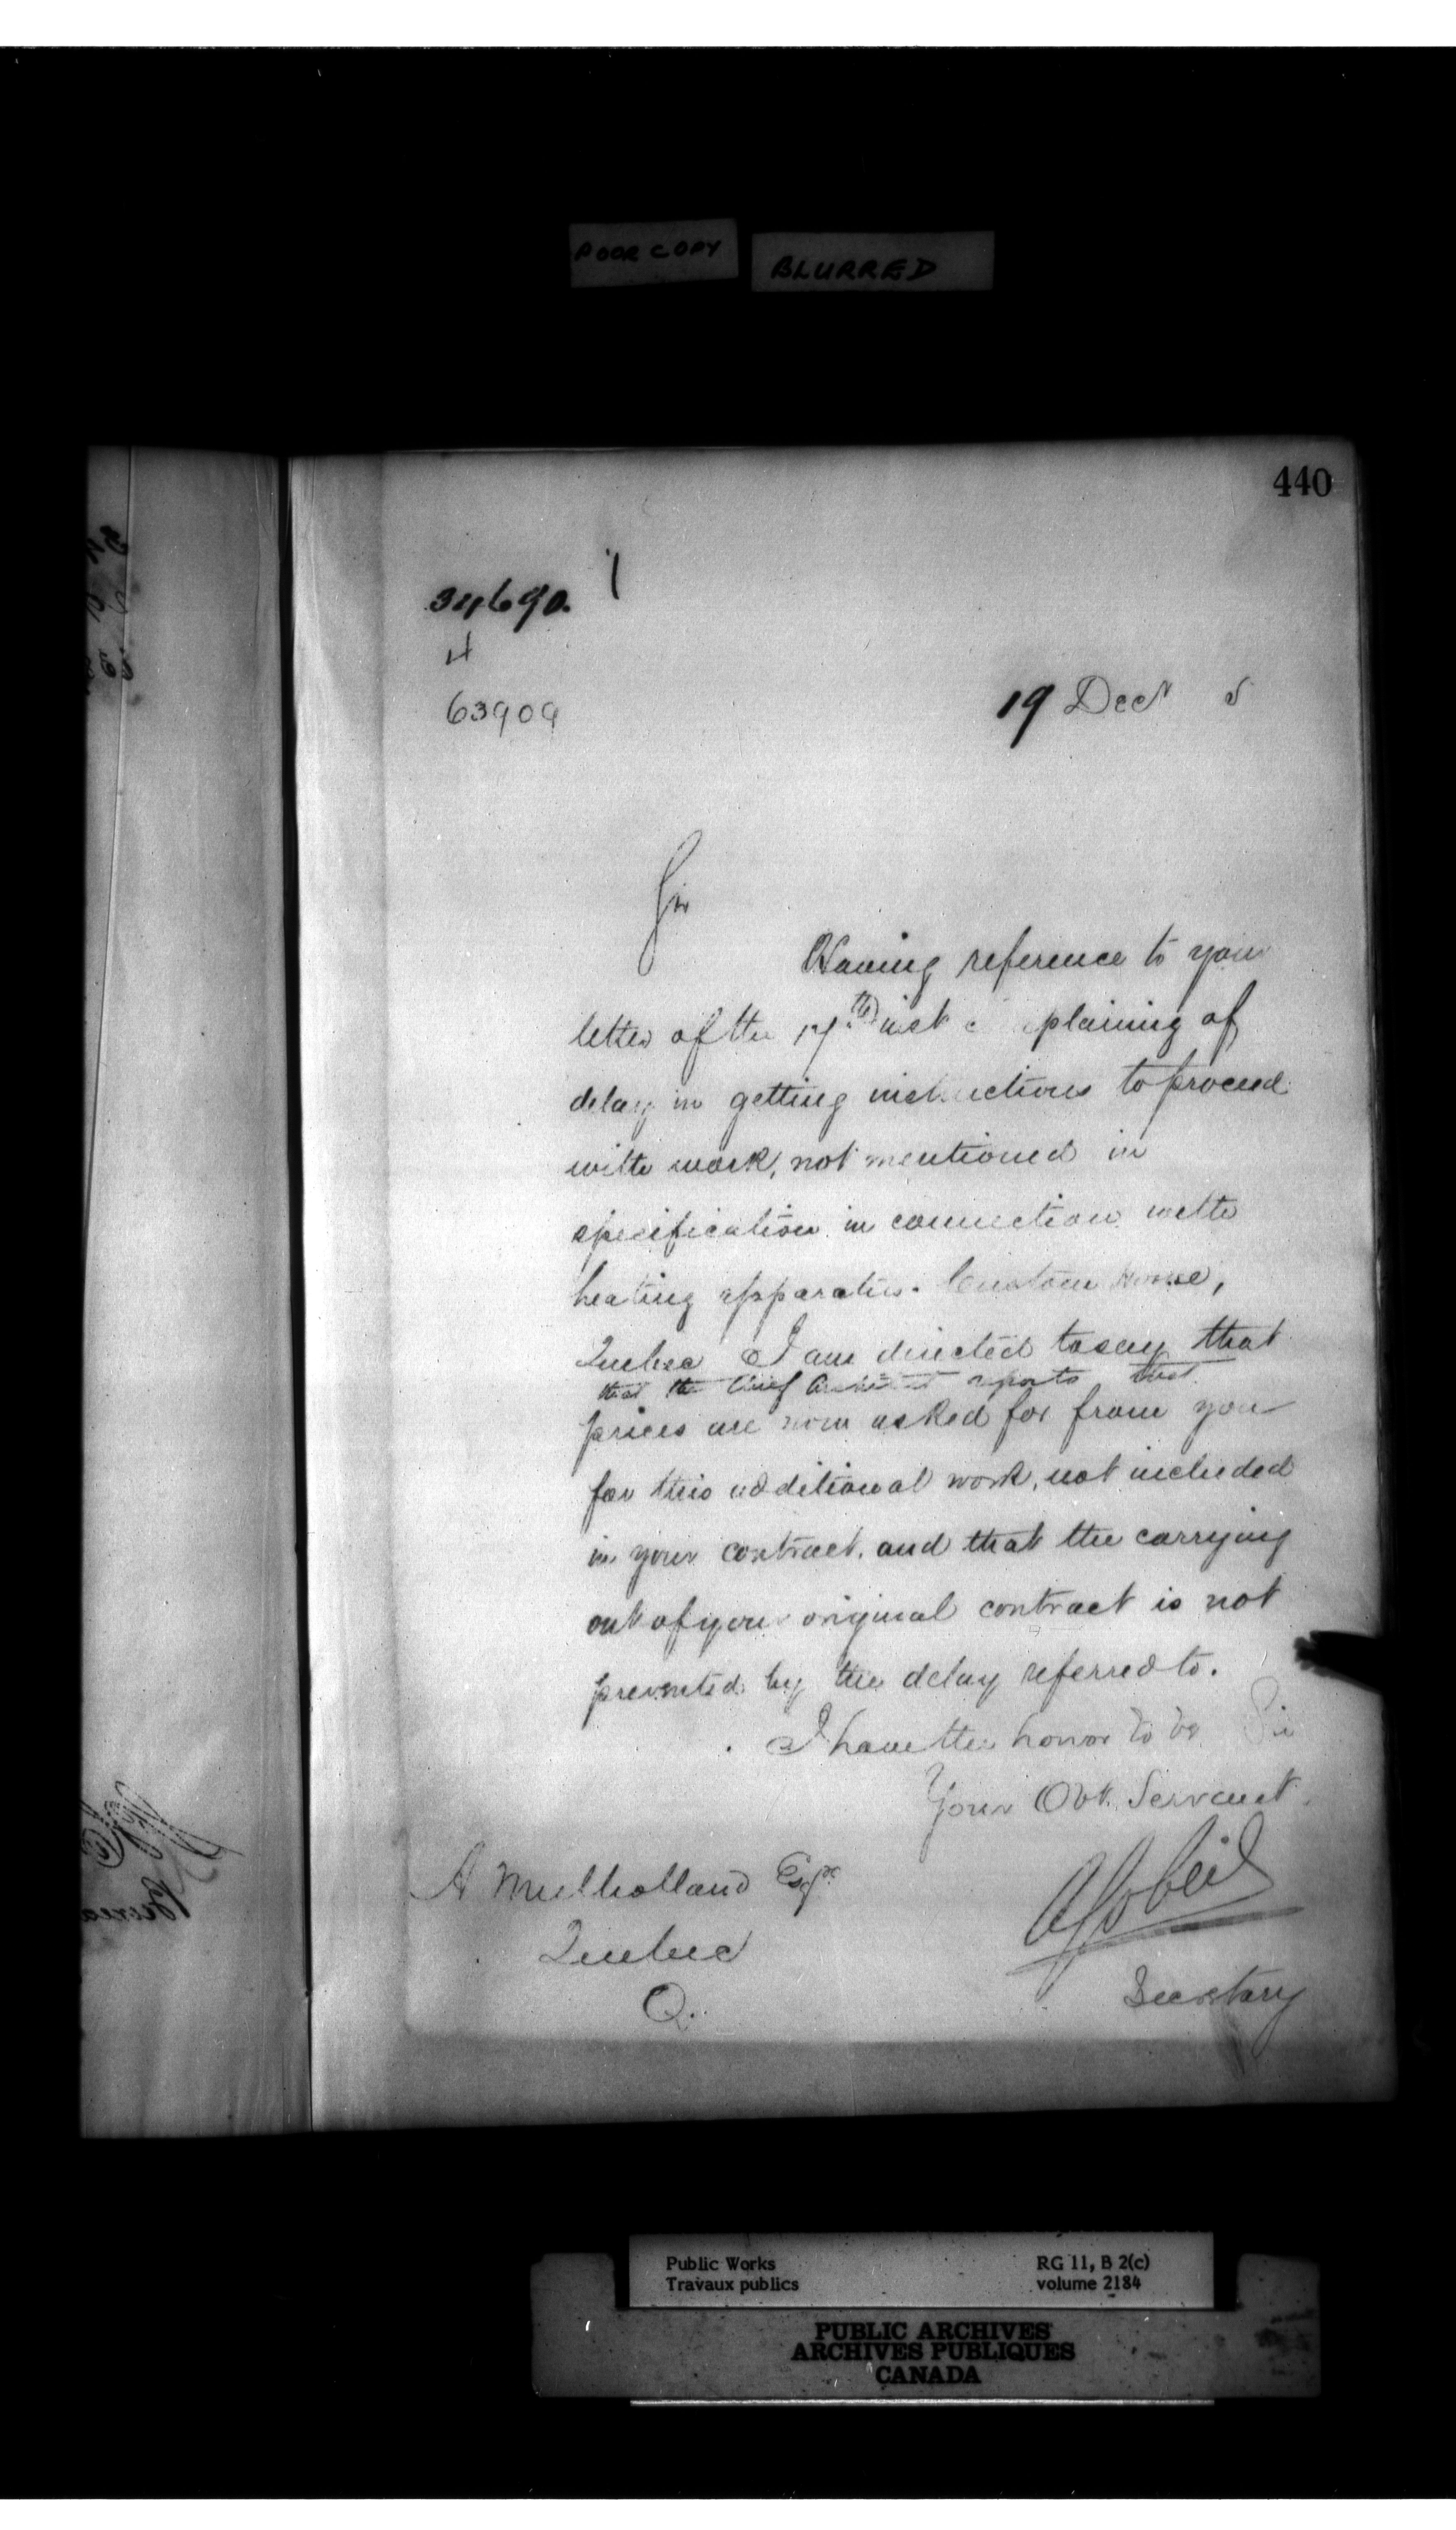 POOR COPY BLURRED
440
34690.
63909
19 Decr 5
Sir
Having reference to your
letter of the 17th inst c plaining of
delay in getting instructions to proceed
with work, not mentioned in
specification in connection with
heating apparatus. Custom House,
Quebec I am directed to say that
that the Chief Architect reports that
prices are now asked for from you
for this additional work, not included
in your contract, and that the carrying
out of your original contract is not
prevented by the delay referred to.
I have the honor to be Sir
Your Obt. Servant.
A Mulholland Esqre
Quebec
Q.
A Gobeil
Secretary
Public Works RG 11, B 2(c)
Travaux publics volume 2184
PUBLIC ARCHIVES
ARCHIVES PUBLIQUES
CANADA